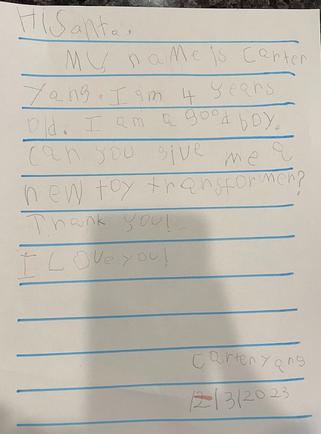 Hi Santa.
My name is Carter
Yang. I am 4 years
old. I am a good boy.
Can you give me a
new toy transformer?
Thank you!
I Love you!
Carter yang
12/3/2023